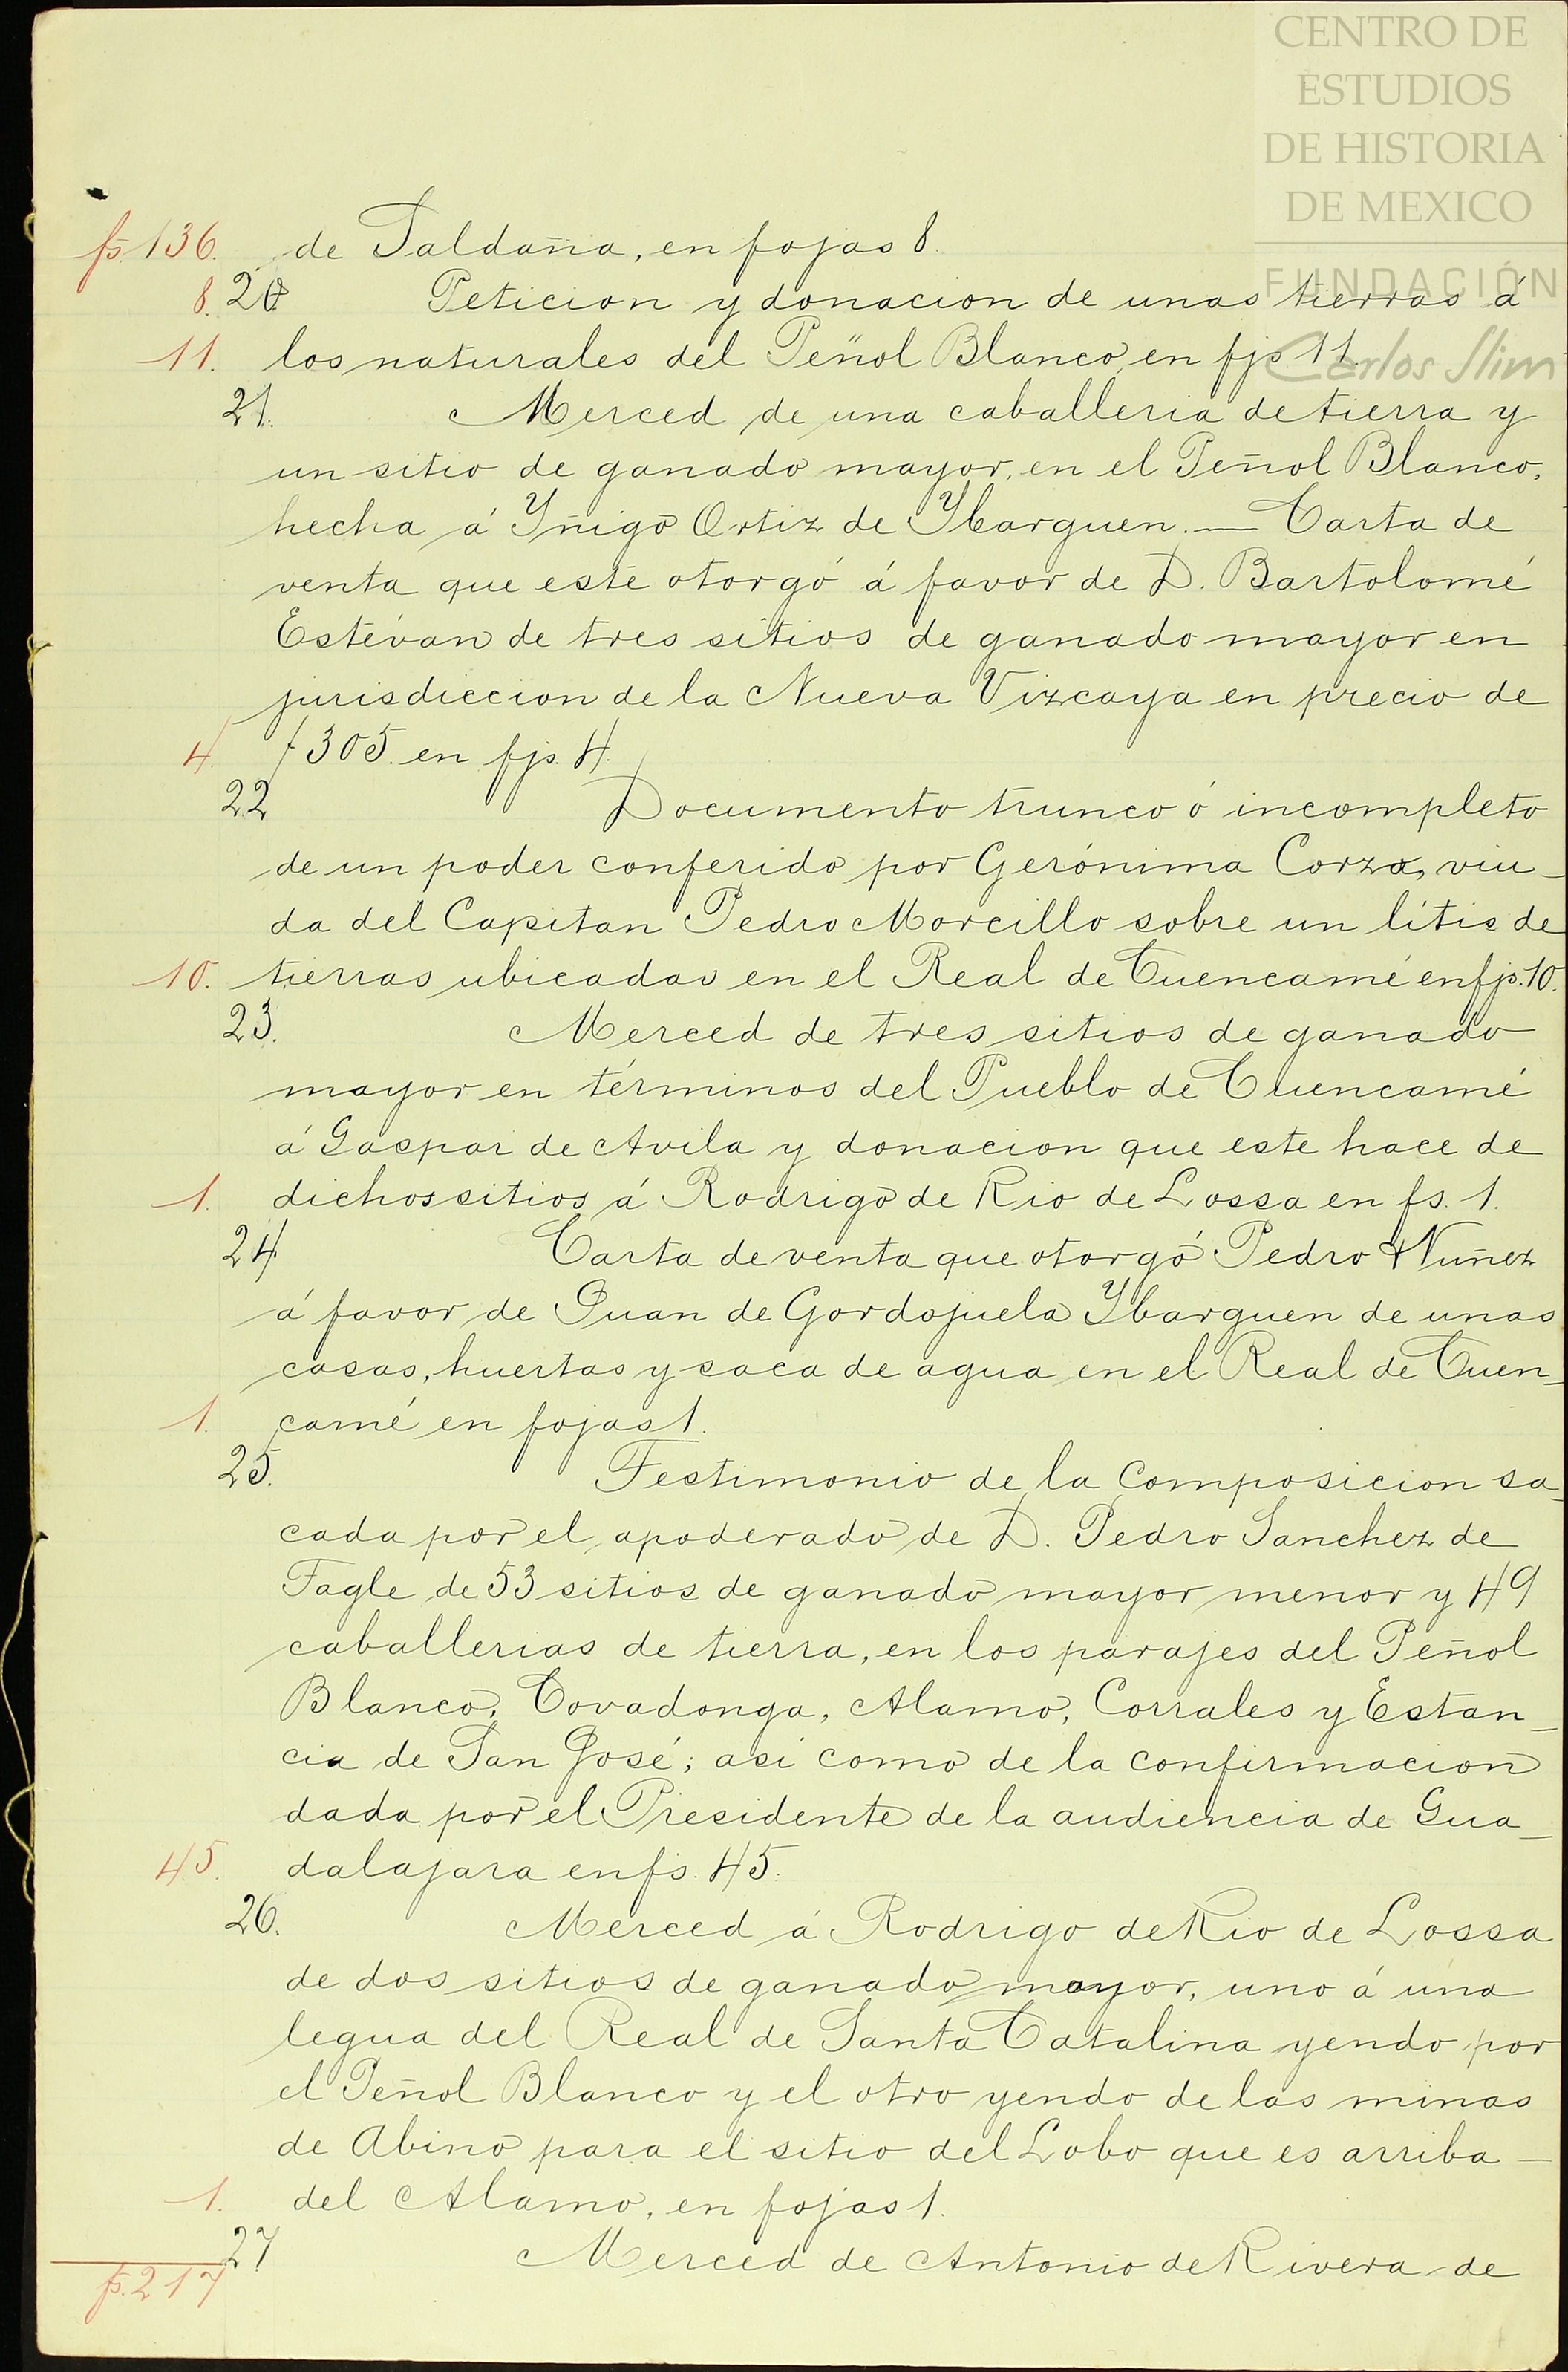 CENTRO DE
ESTUDIOS
DE HISTORIA
DE MEXICO
FUNDACIÓN
Carlos Slim
fs. 136. de Saldaña, en fojas 8.
8. 20. Peticion y donacion de unas tierras á
11. los naturales del Peñol Blanco, en fjs 11.
21. Merced de una caballeria de tierra y
un sitio de ganado mayor, en el Peñol Blanco,
hecha á Yñigo Ortiz de Ybarguen. — Carta de
venta que este otorgó á favor de D. Bartolomé
Estévan de tres sitios de ganado mayor en
jurisdiccion de la Nueva Vizcaya en precio de
4. $305. en fjs. 4.
22 Documento trunco ó incompleto
de un poder conferido por Gerónima Corza, viu-
da del Capitan Pedro Morcillo sobre un litis de
10. tierras ubicadas en el Real de Cuencamé en fjs. 10.
23. Merced de tres sitios de ganado
mayor en términos del Pueblo de Cuencamé
á Gaspar de Avila y donacion que este hace de
1. dichos sitios á Rodrigo de Rio de Lossa en fs. 1.
24 Carta de venta que otorgó Pedro Nuñez
á favor de Juan de Gordojuela Ybarguen de unas
casas, huertas y saca de agua en el Real de Cuen-
1. camé en fojas 1.
25. Testimonio de la Composicion sa-
cada por el apoderado de D. Pedro Sanchez de
Tagle de 53 sitios de ganado mayor menor y 49
caballerias de tierra, en los parajes del Peñol
Blanco, Covadonga, Alamo, Corrales y Estan-
cia de San José; asi como de la confirmacion
dada por el Presidente de la audiencia de Gua-
45. dalajara en fs. 45.
26. Merced á Rodrigo de Rio de Lossa
de dos sitios de ganado mayor, uno á una
legua del Real de Santa Catalina yendo por
el Peñol Blanco y el otro yendo de las minas
de Abino para el sitio del Lobo que es arriba —
1. del Alamo, en fojas 1.
27 Merced de Antonio de Rivera de
fs. 217